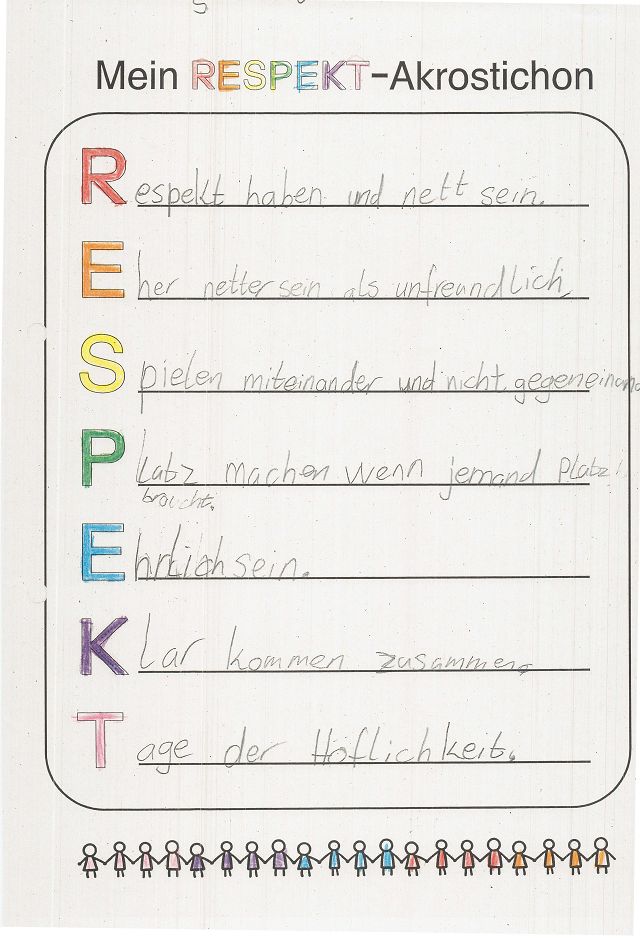 Mein RESPEKT-Akrostichon
Respekt haben und nett sein.
Eher netter sein als unfreundlich
Spielen miteinander und nicht gegeneinand
Platz machen wenn jemand Platz
braucht.
Ehrlich sein.
Klar kommen zusammen.
Tage der Höflichkeit.